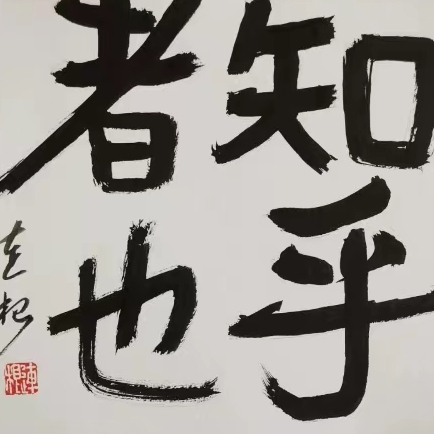 知乎
者也